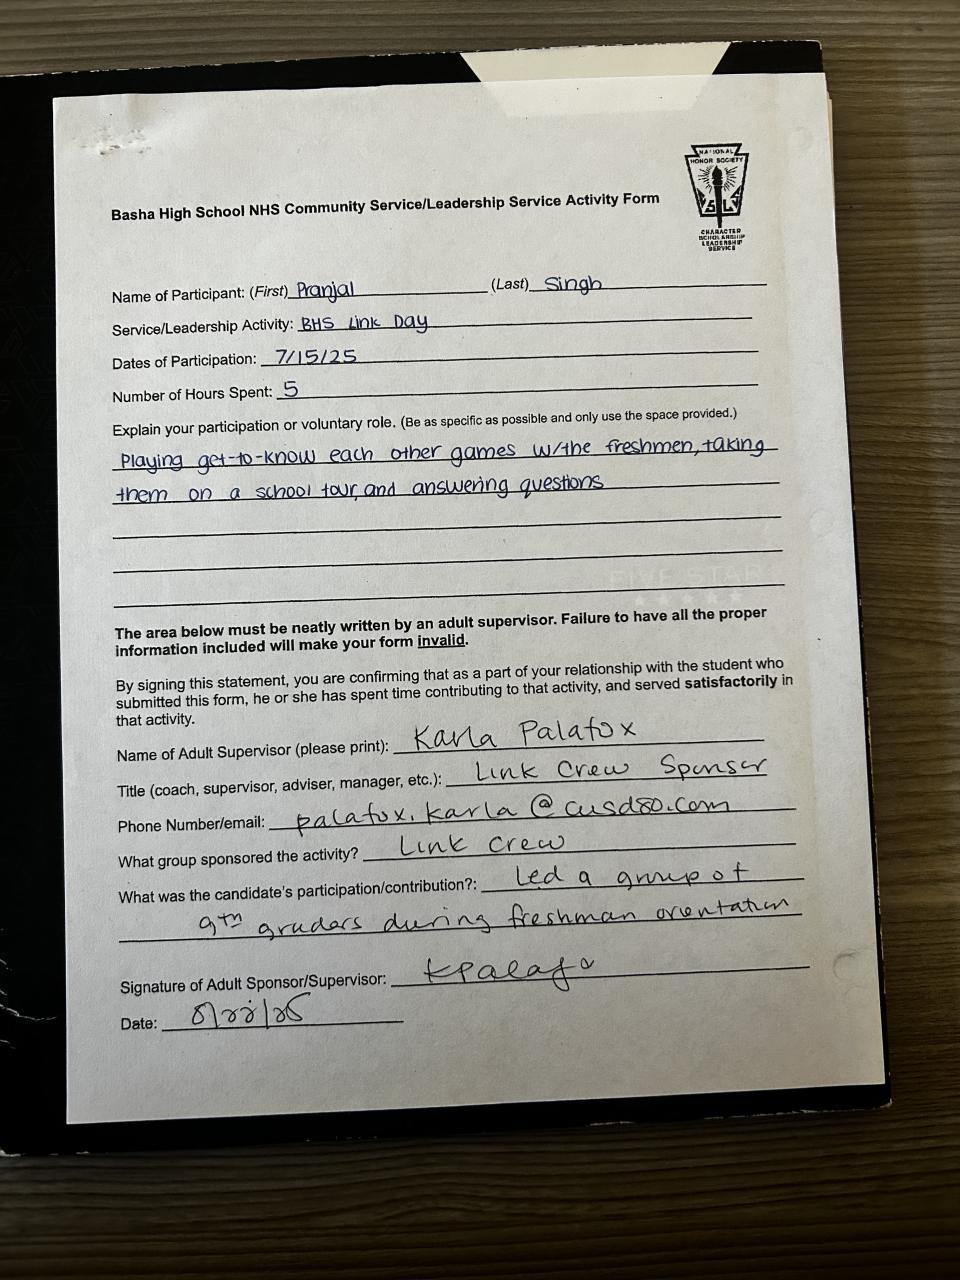 NATIONAL
HONOR SOCIETY
S L
CHARACTER
SCHOLARSHIP
LEADERSHIP
SERVICE
Basha High School NHS Community Service/Leadership Service Activity Form
Name of Participant: (First) Pranjal (Last) Singh
Service/Leadership Activity: BHS Link Day
Dates of Participation: 7/15/25
Number of Hours Spent: 5
Explain your participation or voluntary role. (Be as specific as possible and only use the space provided.)
Playing get-to-know each other games w/the freshmen, taking
them on a school tour, and answering questions
FIVE STAR
The area below must be neatly written by an adult supervisor. Failure to have all the proper
information included will make your form invalid.
By signing this statement, you are confirming that as a part of your relationship with the student who
submitted this form, he or she has spent time contributing to that activity, and served satisfactorily in
that activity.
Name of Adult Supervisor (please print): Karla Palafox
Title (coach, supervisor, adviser, manager, etc.): Link Crew Sponsor
Phone Number/email: palafox.karla@cusd80.com
What group sponsored the activity? Link Crew
What was the candidate's participation/contribution?: Led a group of
9th graders during freshman orientation
Signature of Adult Sponsor/Supervisor: KPalafo
Date: 8/22/25